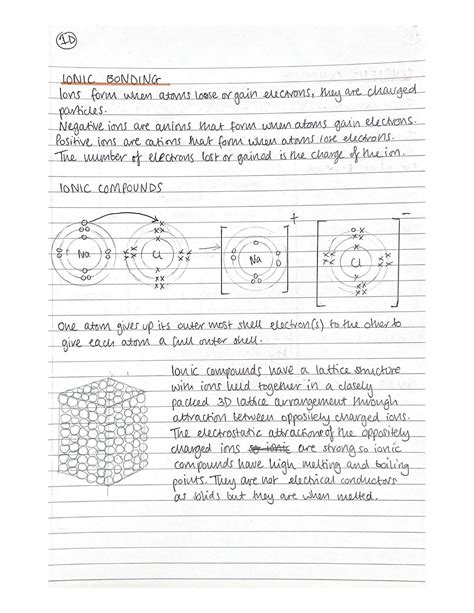 1D
IONIC BONDING
Ions form when atoms loose or gain electrons, they are charged
particles.
Negative ions are anions that form when atoms gain electrons.
Positive ions are cations that form when atoms lose electrons.
The number of electrons lost or gained is the charge of the ion.
IONIC COMPOUNDS
Na
Cl
Na
+
Cl
-
One atom gives up its outer most shell electron(s) to the other to
give each atom a full outer shell.
Ionic compounds have a lattice structure
with ions held together in a closely
packed 3D lattice arrangement through
attraction between oppositely charged ions.
The electrostatic attractions of the oppositely
charged ions so ionic are strong so ionic
compounds have high melting and boiling
points. They are not electrical conductors
as solids but they are when melted.